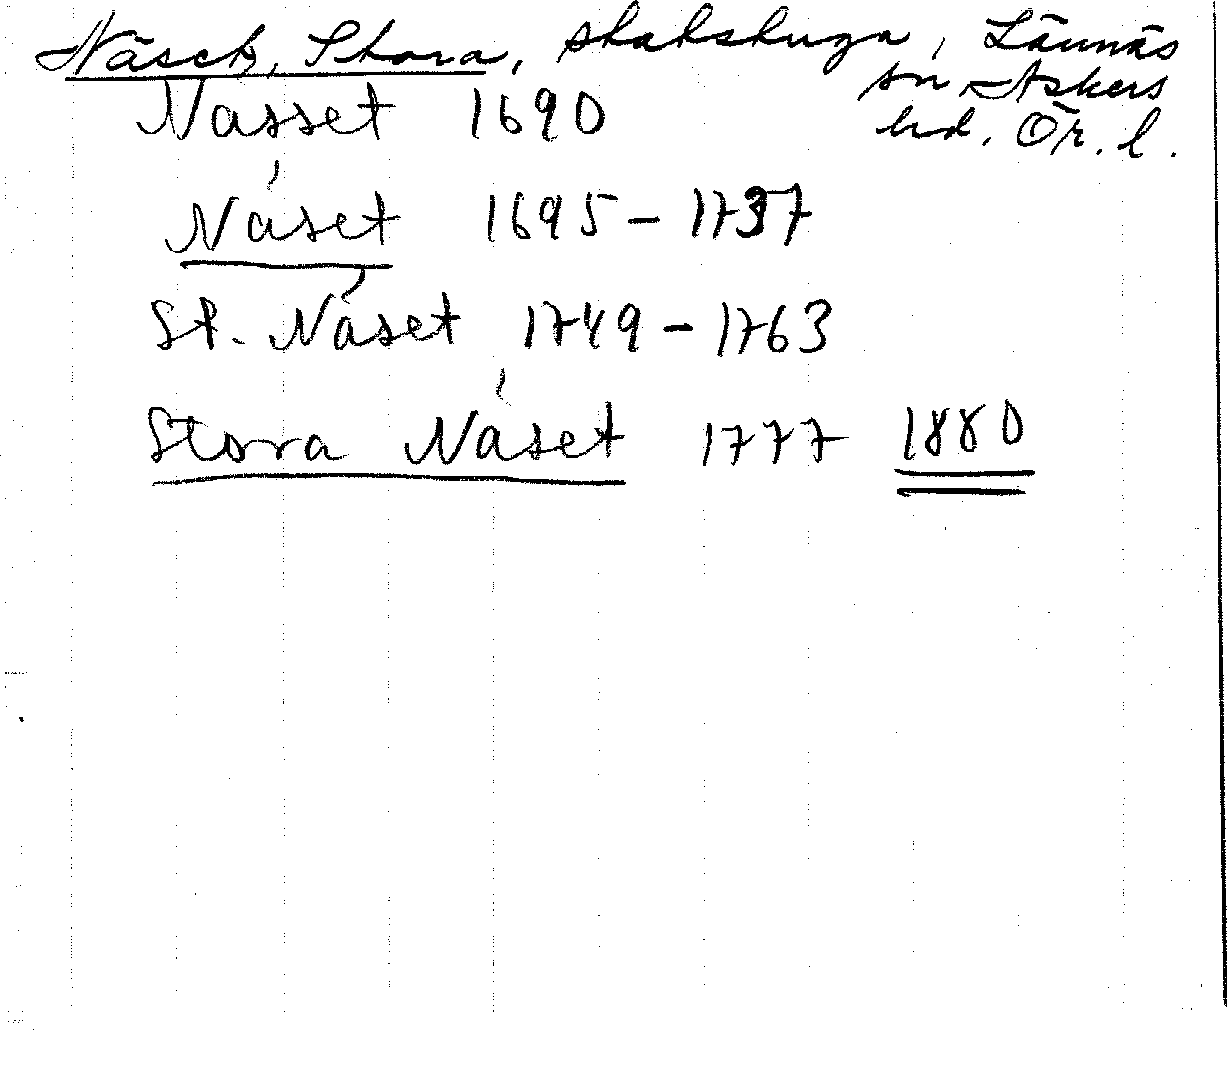 Näset, Stora, skatskuga, Lännäs
sn Askers
hd. Ör. l.
Nässet 1690
Näset 1695 – 1737
St. Näset 1749 – 1763
Stora Näset 1777 1880